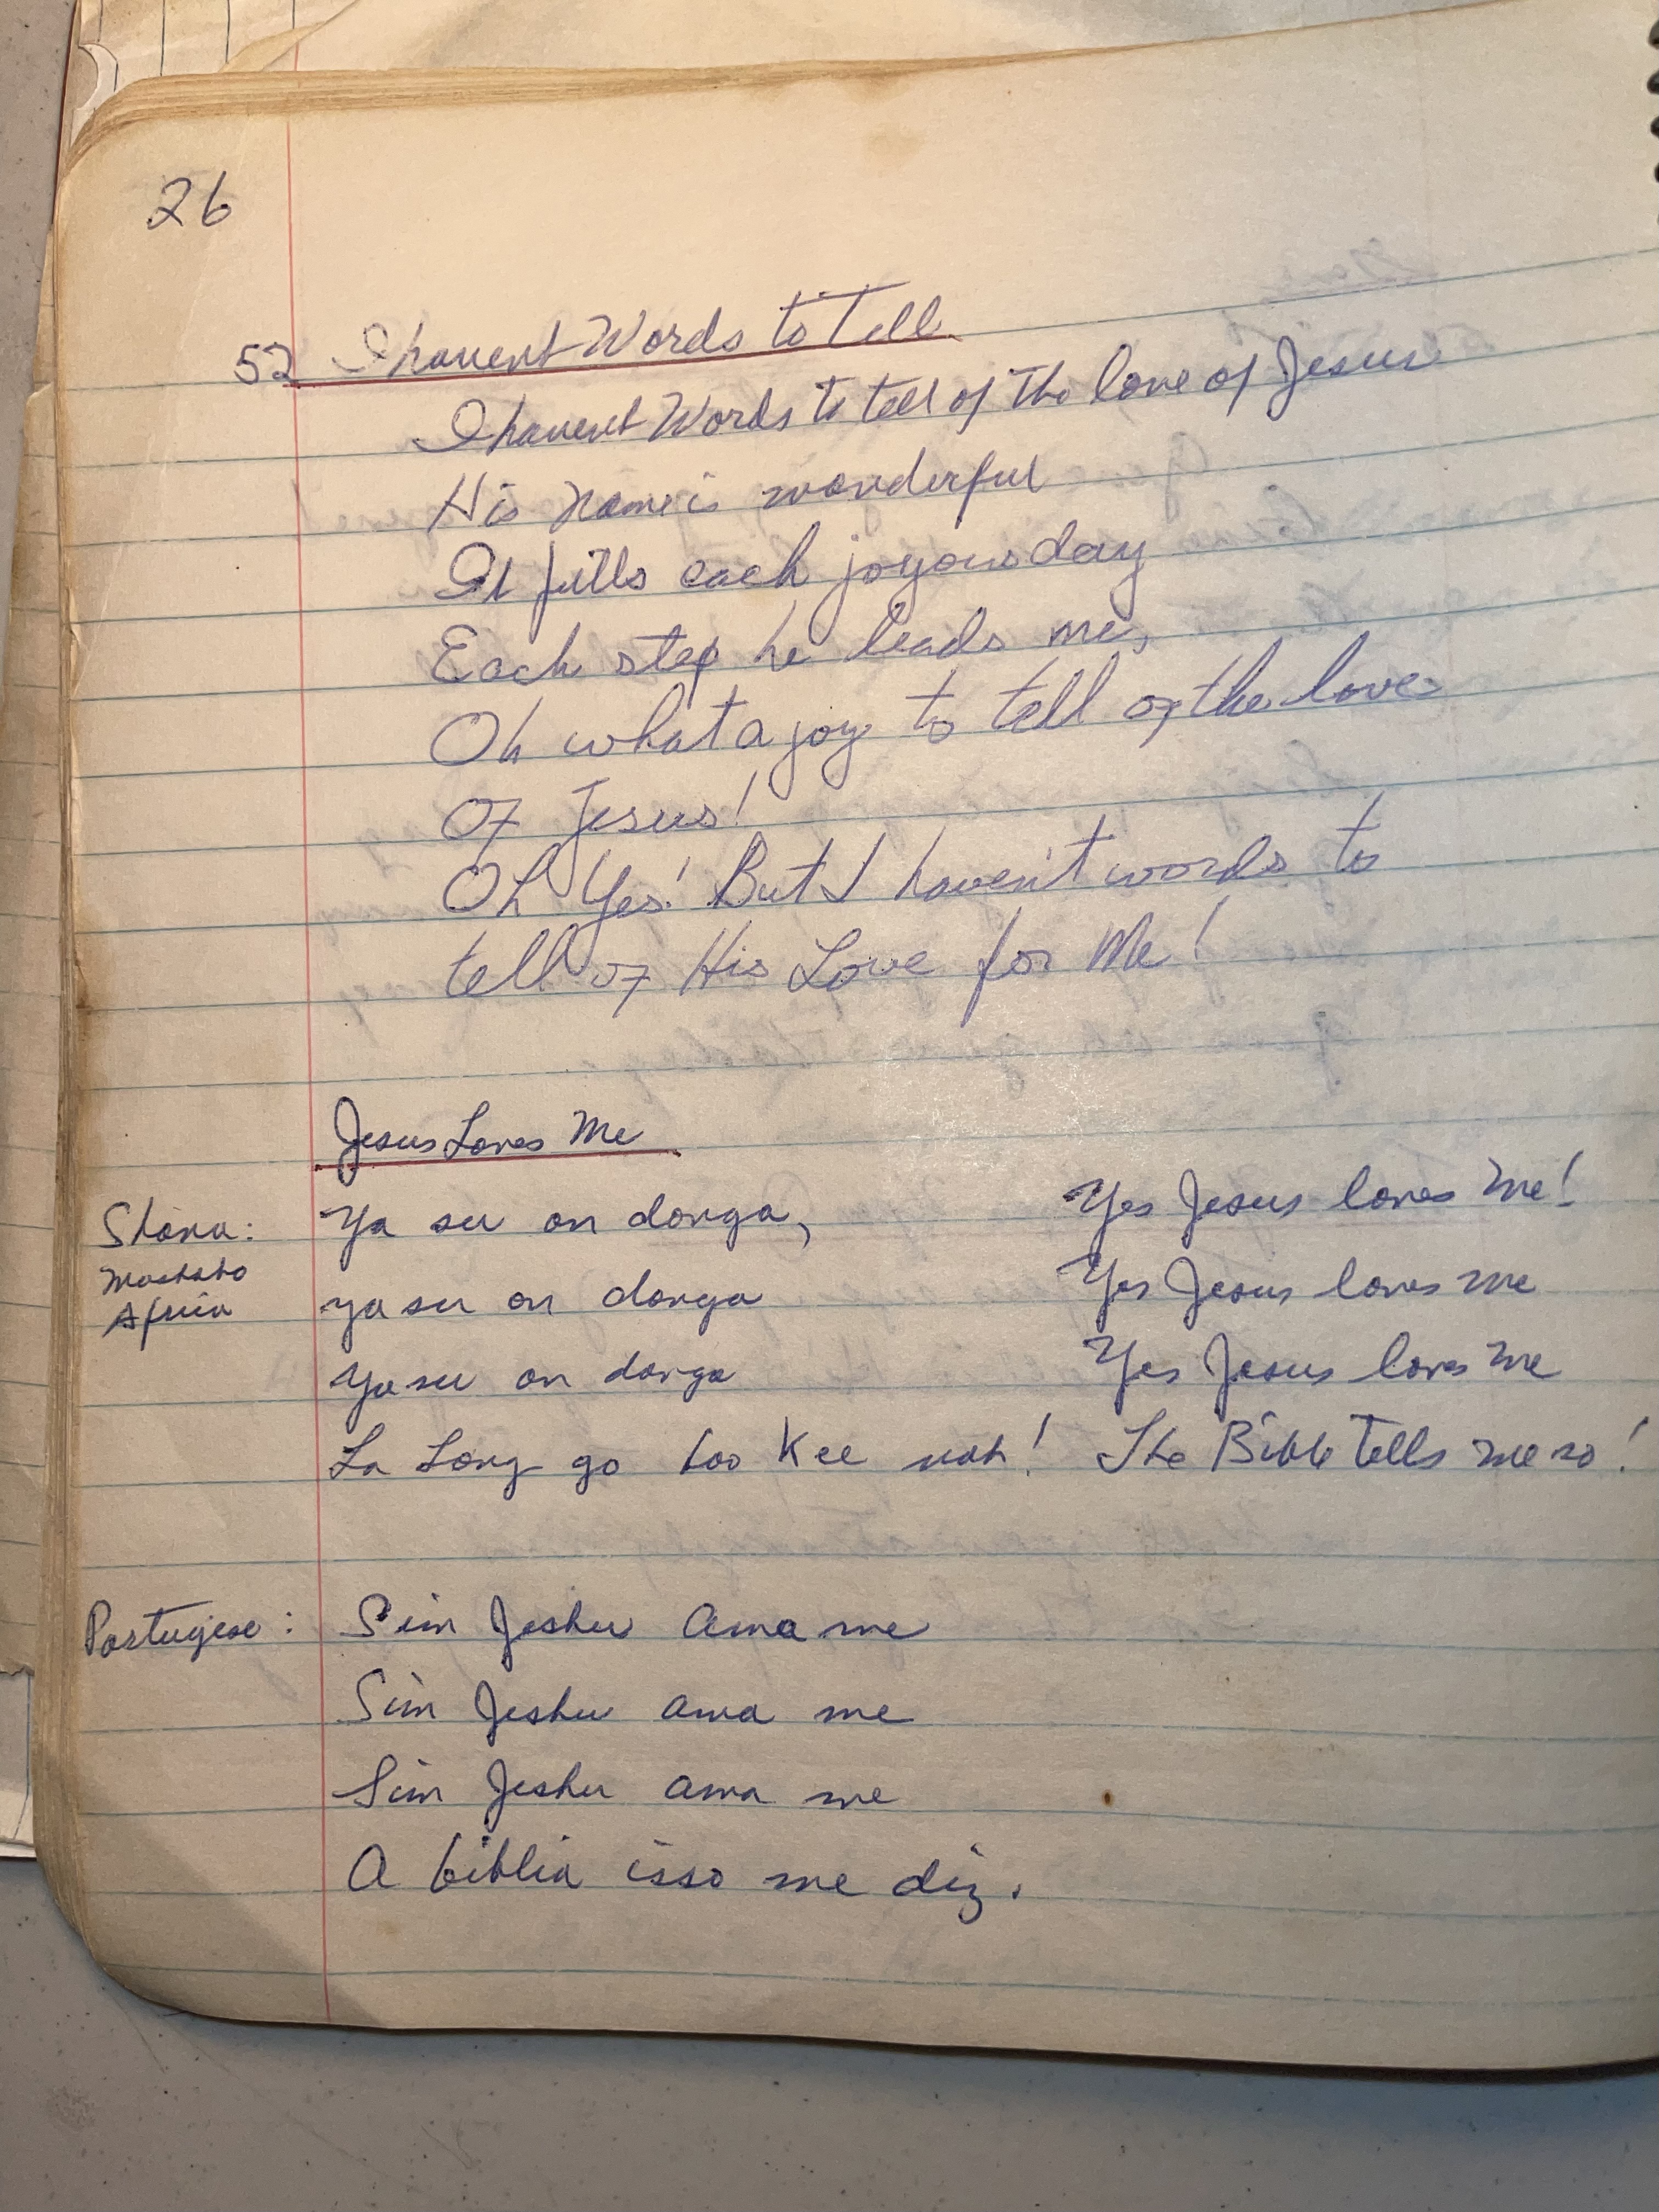 26
52 I havent Words to Tell
I havent Words to tell of the love of Jesus
His name is wonderful
It fills each joyous day
Each step he leads me,
Oh what a joy to tell of the love
Of Jesus!
Oh Yes! But I haven't words to
tell of His Love for Me!
Jesus Loves Me
Shona: Ya su on donga, Yes Jesus loves me!
Africa ya su on donga Yes Jesus loves me
Ya su on donga Yes Jesus loves me
La Long go boo Kee nah! The Bible Tells me so!
Portugese: Sim Jeshu ama me
Sim Jeshu ama me
Sim Jeshu ama me
A biblia isso me diz.